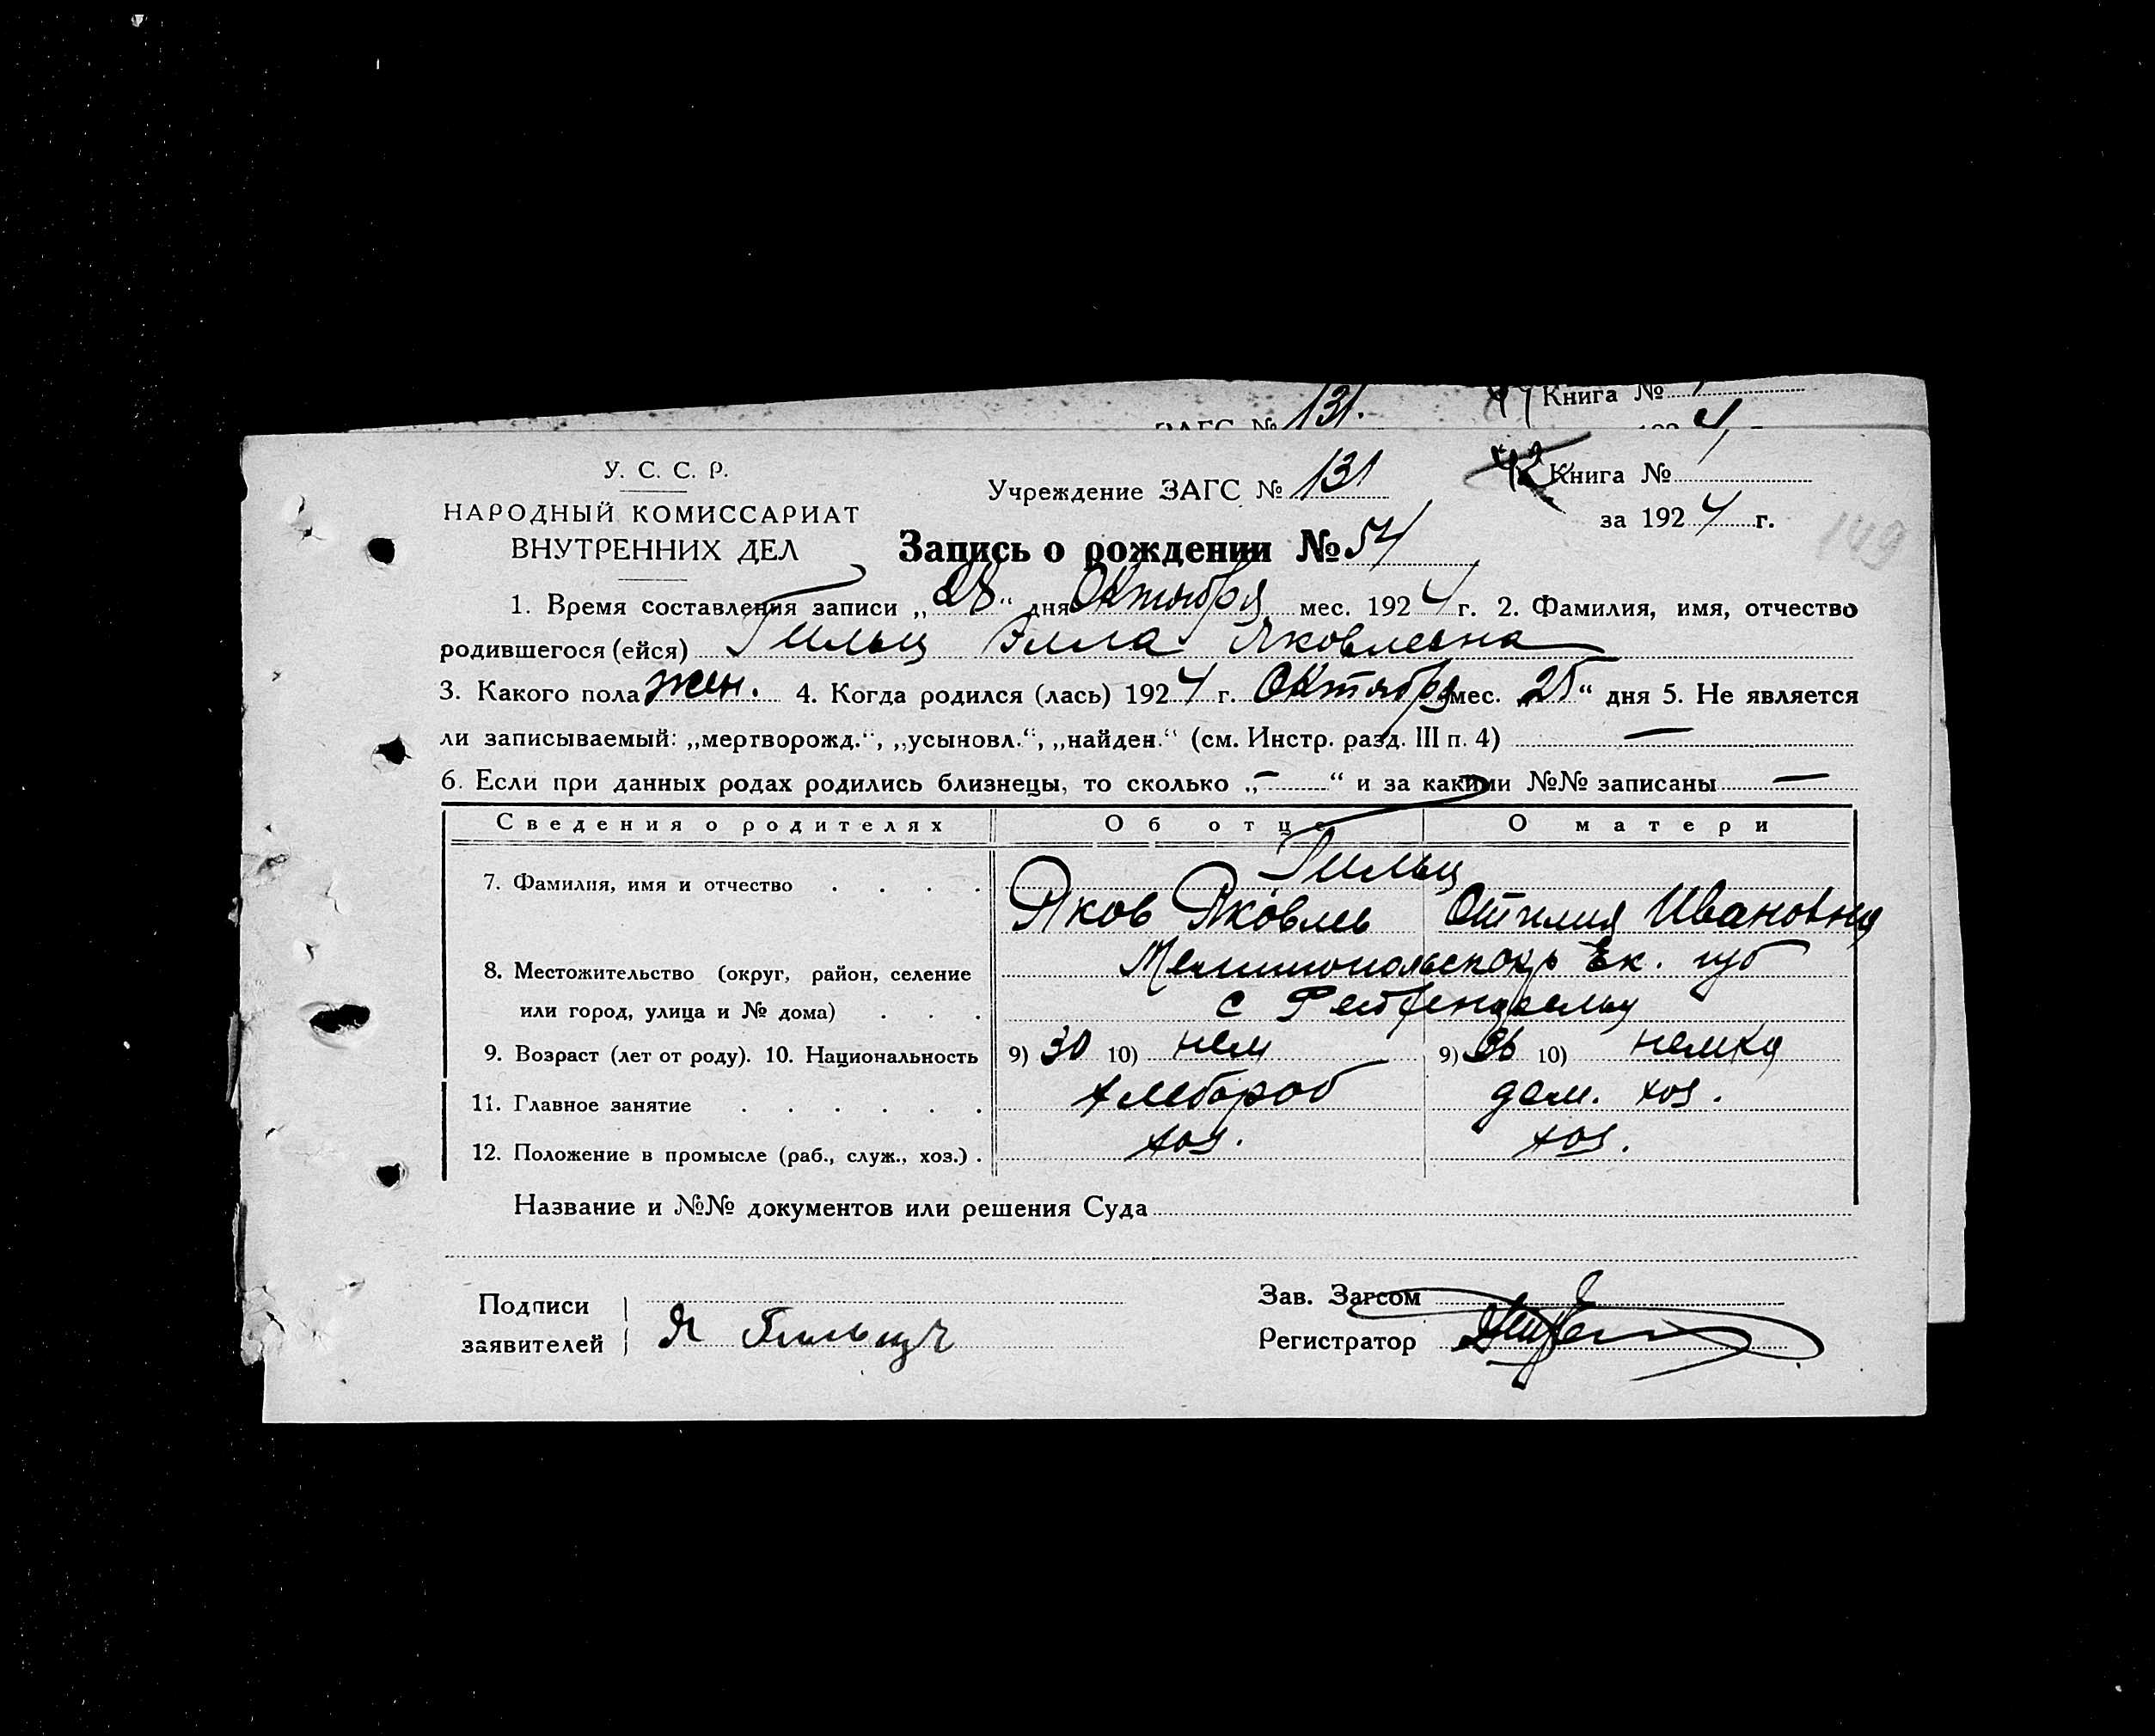 131. Книга №
ЗАГС № 192 4
У. С. С. Р.
НАРОДНЫЙ КОМИССАРИАТ
ВНУТРЕННИХ ДЕЛ
Учреждение ЗАГС № 131
Книга №
за 192 4 г.
149
Запись о рождении № 54
1. Время составления записи „28“ дня Октября мес. 192 4 г. 2. Фамилия, имя, отчество
родившегося (ейся) Гильц Элла Яковлевна
3. Какого пола жен. 4. Когда родился (лась) 192 4 г. Октября мес. „25“ дня 5. Не является
ли записываемый: „мертворожд.“, „усыновл.“, „найден.“ (см. Инстр. разд. III п. 4) —
6. Если при данных родах родились близнецы, то сколько „—“ и за какими №№ записаны —
Сведения о родителях Об отце О матери
7. Фамилия, имя и отчество . . . . Гильц
Яков Яковлев Отилия Ивановна
8. Местожительство (округ, район, селение Мелитопольск окр Ек. губ
или город, улица и № дома) . . . с
9. Возраст (лет от роду). 10. Национальность 9) 30 10) нем 9) 10) немка
11. Главное занятие . . . . . . хлебороб дом. хоз.
12. Положение в промысле (раб., служ., хоз.) . хоз. хоз.
Название и №№ документов или решения Суда
Подписи
заявителей Я
Зав. Загсом
Регистратор